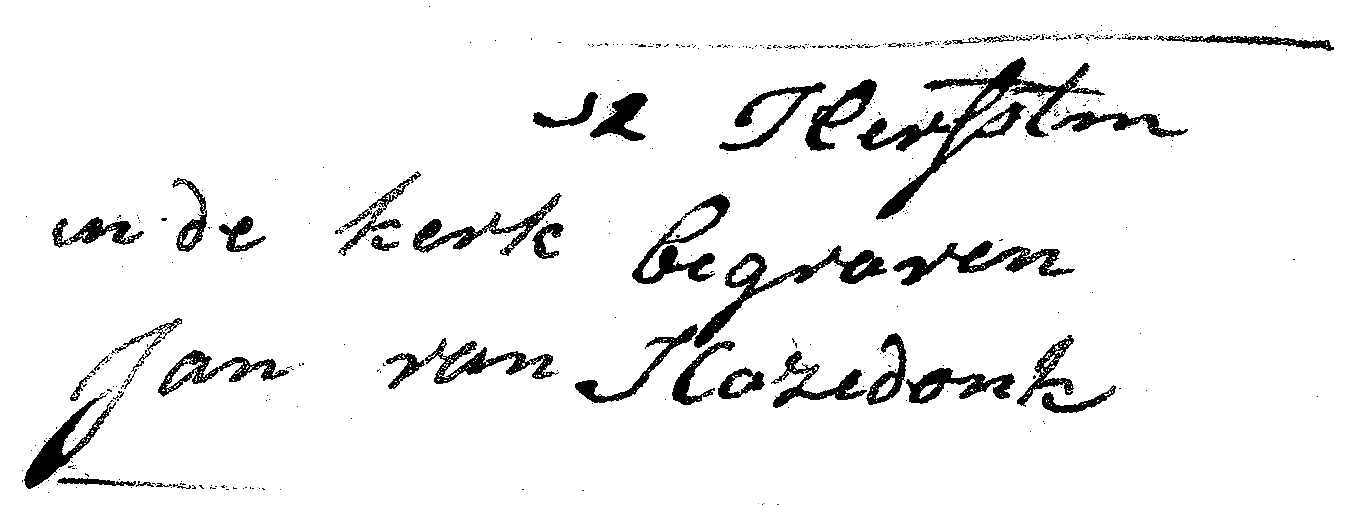 12 Herfstm
in de kerk begraven
Jan van Hazedonk